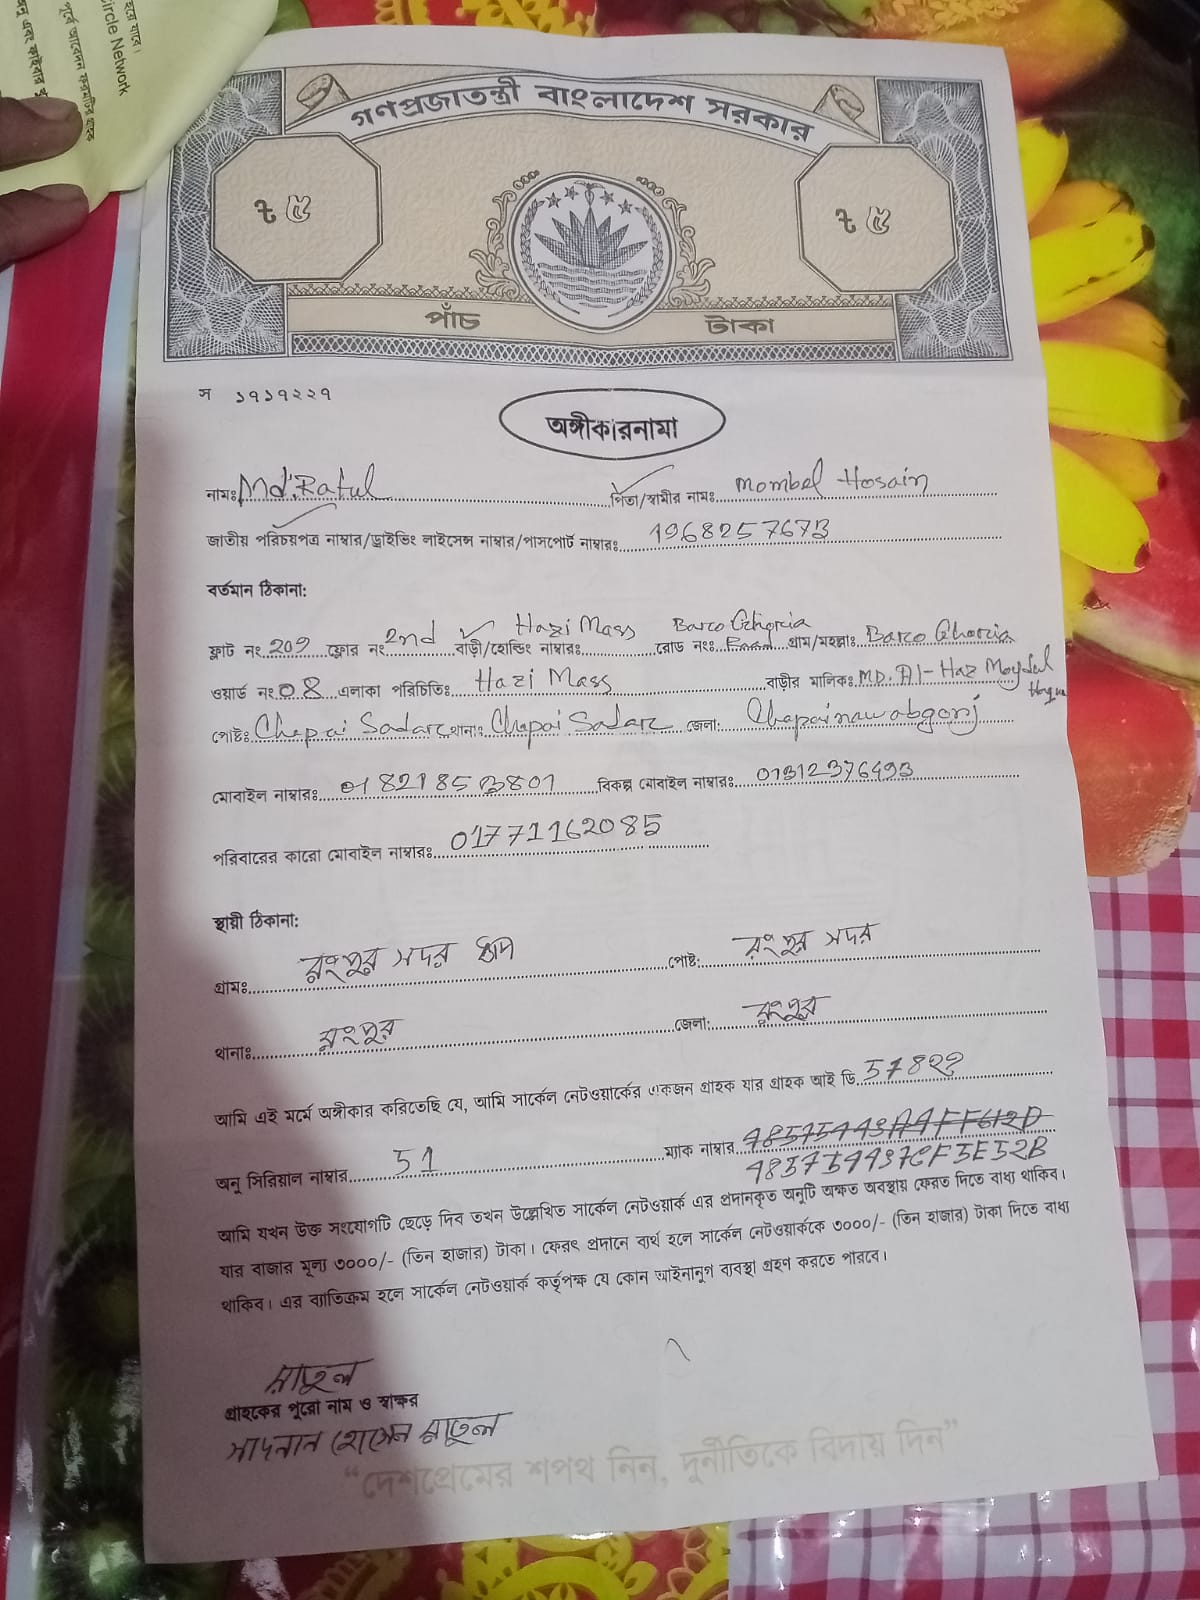 হয়ে যাবে।
Circle Network
পূর্বে আবেদন ফরমটির গ্রাহক
গণপ্রজাতন্ত্রী বাংলাদেশ সরকার
৳ ৫
৳ ৫
পাঁচ টাকা
স ১৭১৭২২৭
অঙ্গীকারনামা
নামঃ Md. Ratul পিতা/স্বামীর নামঃ Mombel Hosain
জাতীয় পরিচয়পত্র নাম্বার/ড্রাইভিং লাইসেন্স নাম্বার/পাসপোর্ট নাম্বারঃ 1968257673
বর্তমান ঠিকানা:
ফ্লাট নং 209 ফ্লোর নং 2nd বাড়ী/হোল্ডিং নাম্বারঃ Hazi Mass রোড নংঃ Baroo Ghoria গ্রাম/মহল্লাঃ Baroo Ghoria
ওয়ার্ড নং 08 এলাকা পরিচিতিঃ Hazi Mass বাড়ীর মালিকঃ MD. Al-Haz Moydul Hoque
পোষ্টঃ Chapai Sadar থানাঃ Chapai Sadar জেলা: Chapainawabgonj
মোবাইল নাম্বারঃ 01821853801 বিকল্প মোবাইল নাম্বারঃ 01312376493
পরিবারের কারো মোবাইল নাম্বারঃ 01771162085
স্থায়ী ঠিকানা:
গ্রামঃ রংপুর সদর পোষ্ট: রংপুর সদর
থানাঃ রংপুর জেলা: রংপুর
আমি এই মর্মে অঙ্গীকার করিতেছি যে, আমি সার্কেল নেটওয়ার্কের একজন গ্রাহক যার গ্রাহক আই ডি
অনু সিরিয়াল নাম্বার 51 ম্যাক নাম্বার
485754437CF5E52B
আমি যখন উক্ত সংযোগটি ছেড়ে দিব তখন উল্লেখিত সার্কেল নেটওয়ার্ক এর প্রদানকৃত অনুটি অক্ষত অবস্থায় ফেরত দিতে বাধ্য থাকিব।
যার বাজার মূল্য ৩০০০/- (তিন হাজার) টাকা। ফেরৎ প্রদানে ব্যর্থ হলে সার্কেল নেটওয়ার্ককে ৩০০০/- (তিন হাজার) টাকা দিতে বাধ্য
থাকিব। এর ব্যাতিক্রম হলে সার্কেল নেটওয়ার্ক কর্তৃপক্ষ যে কোন আইনানুগ ব্যবস্থা গ্রহণ করতে পারবে।
রাতুল
গ্রাহকের পুরো নাম ও স্বাক্ষর
সাদনান হোসেন রাতুল
“দেশপ্রেমের শপথ নিন, দুর্নীতিকে বিদায় দিন”